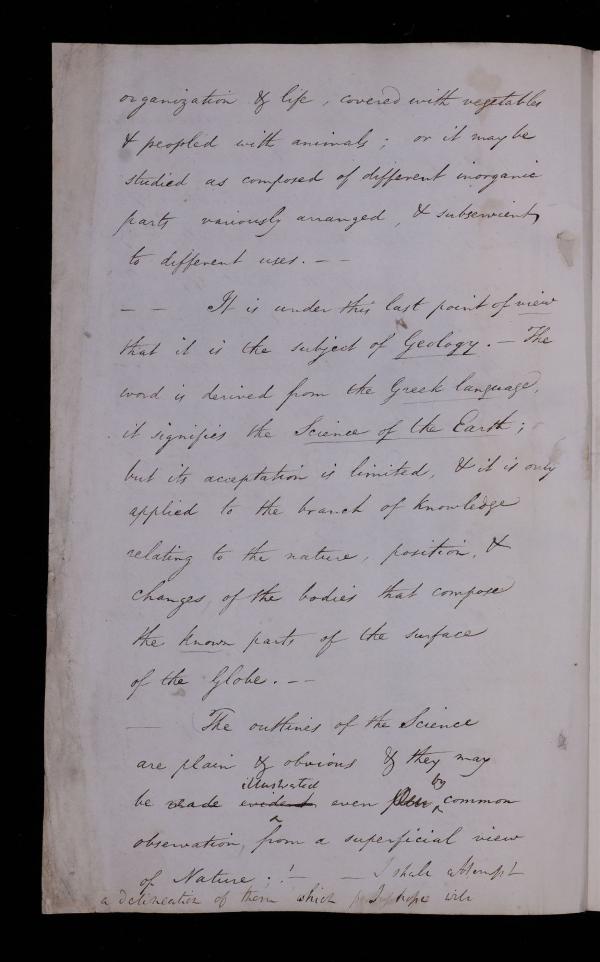 organization & life, covered with vegetables
& peopled with animals; or it may be
studied as composed of different inorganic
parts variously arranged, & subservient
to different uses. - -
- - It is under this last point of view
that it is the subject of Geology. - The
word is derived from the Greek language,
it signifies the Science of the Earth;
but its acceptation is limited, & it is only
applied to the branch of knowledge
relating to the nature, position, &
changes, of the bodies that compose
the known parts of the surface
of the Globe. - -
- The outlines of the Science
are plain & obvious & they may
illustrated by
be made evident even common
observation, from a superficial view
of Nature; !- - I shall attempt
a delineation of them which I hope will